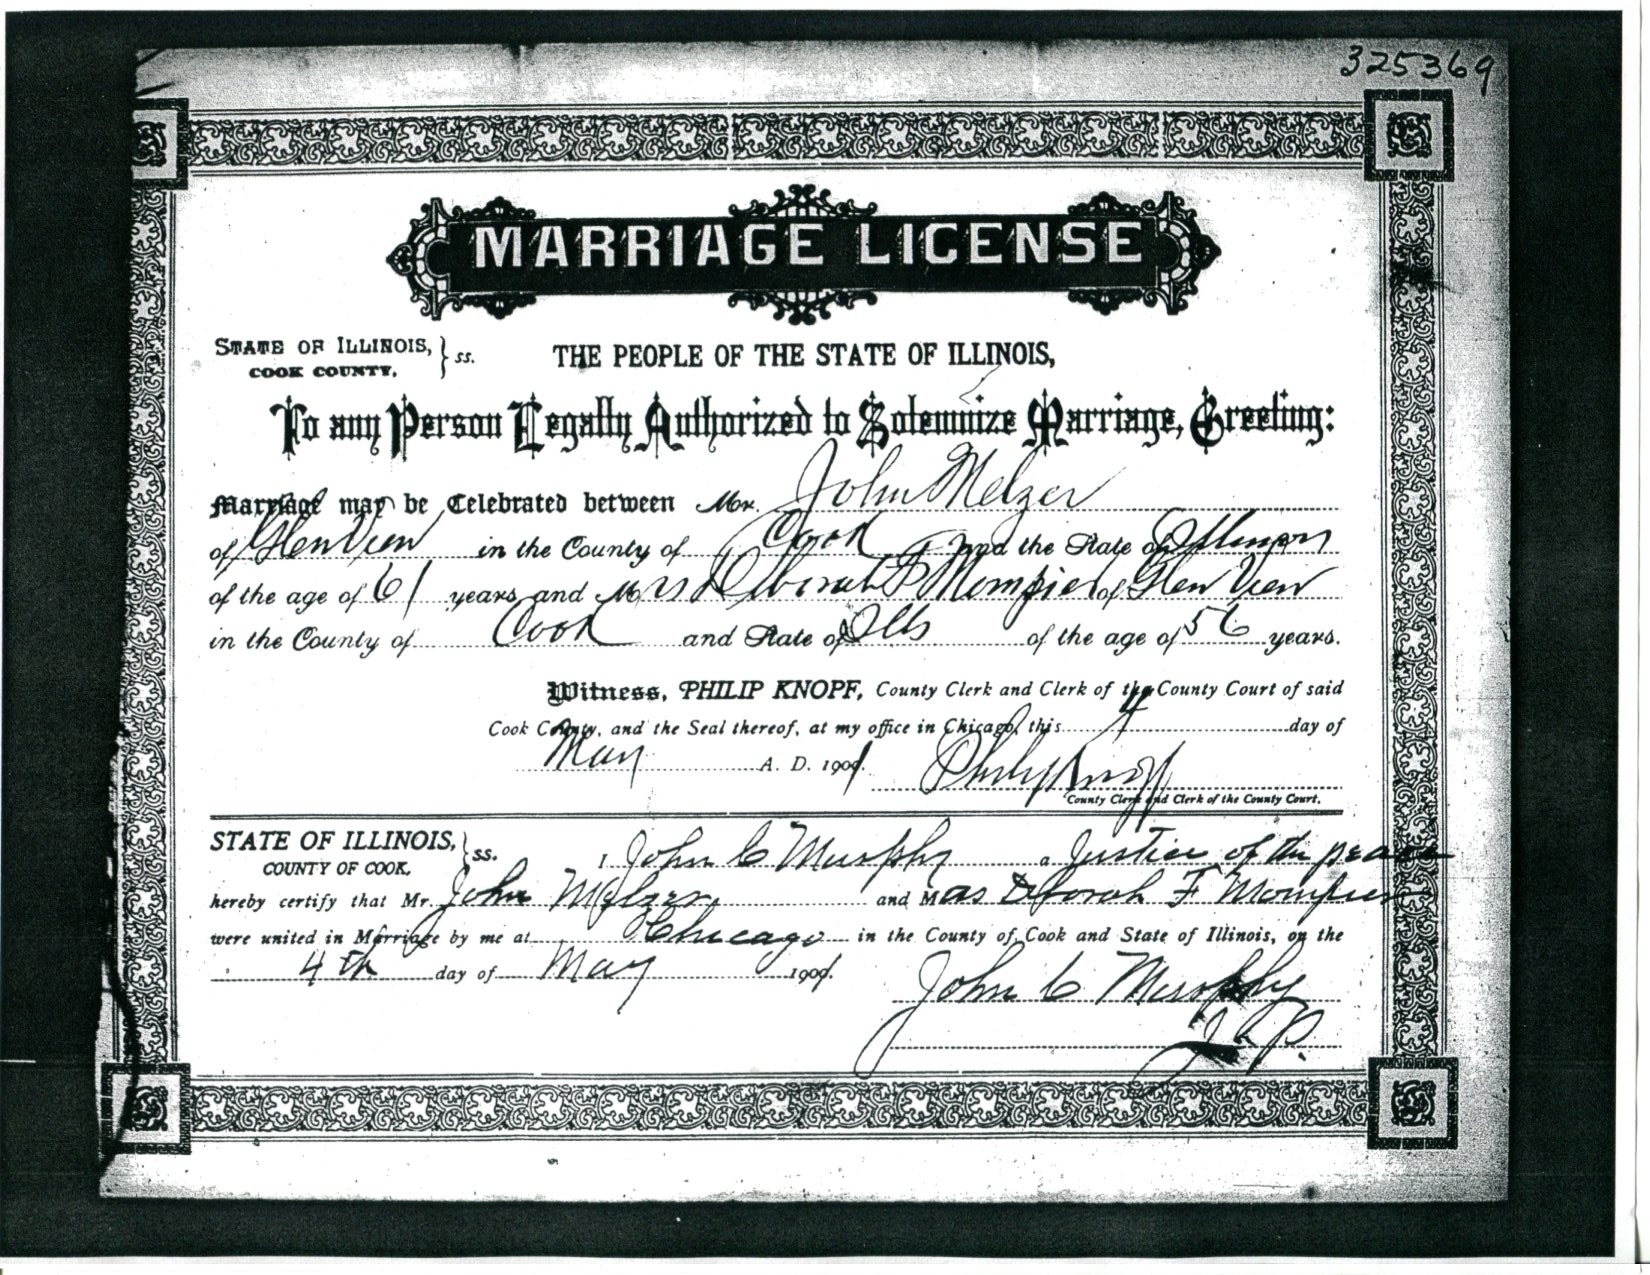 325369
MARRIAGE LICENSE
STATE OF ILLINOIS, } ss. THE PEOPLE OF THE STATE OF ILLINOIS,
COOK COUNTY.
To any Person Legally Authorized to Solemnize Marriage, Greeting:
Marriage may be Celebrated between Mr. John Melzer
of Glen View in the County of Cook and the State of Illinois
of the age of 61 years and Mrs Deborah F Mompier of Glen View
in the County of Cook and State of Ills of the age of 56 years.
Witness, PHILIP KNOPF, County Clerk and Clerk of the County Court of said
Cook County, and the Seal thereof, at my office in Chicago, this 4 day of
May A. D. 1901. Philip Knopf
County Clerk and Clerk of the County Court.
STATE OF ILLINOIS, } ss. I John C Murphy a Justice of the peace
COUNTY OF COOK.
hereby certify that Mr. John Melzer and Mrs Deborah F Mompier
were united in Marriage by me at Chicago in the County of Cook and State of Illinois, on the
4th day of May 1901.
John C Murphy
J. P.